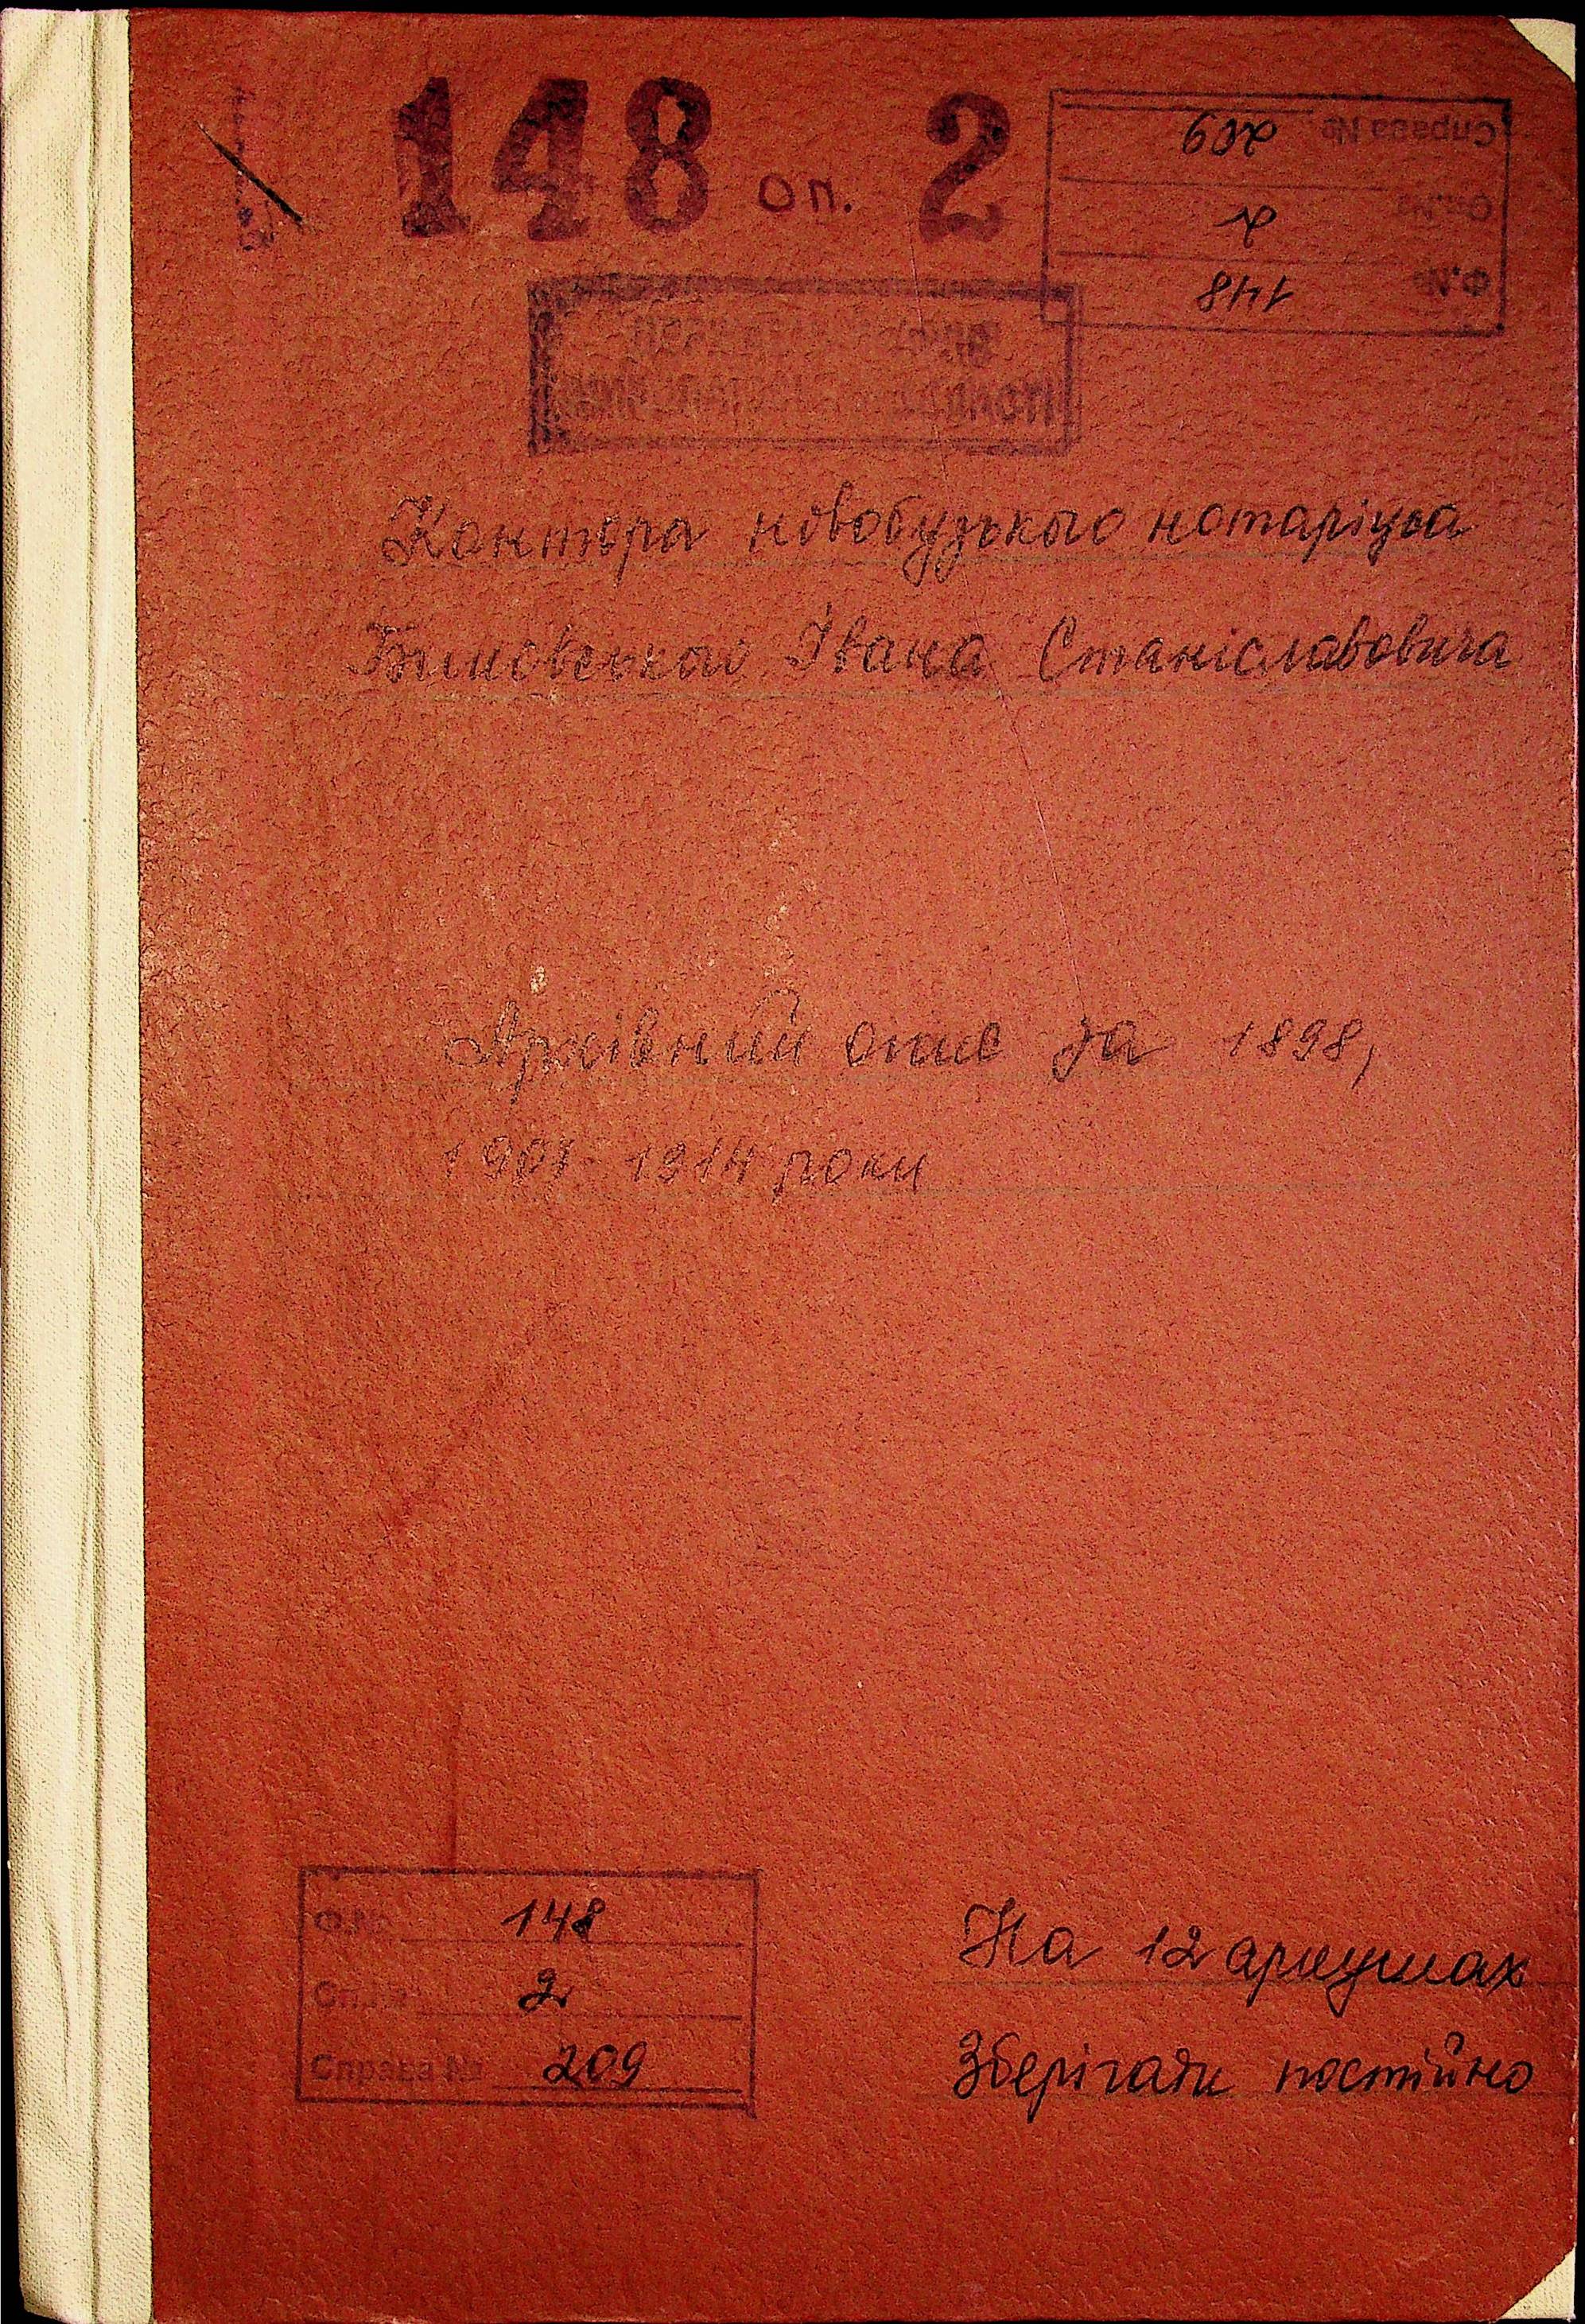 148 оп. 2
Справа № 209
Оп.№ 2
Ф.№ 148
Контора новобузького нотаріуса
Івана Станіславовича
Архівний опис за 1898,
1901-1914 роки
Ф.№ 148
Оп.№ 2
Справа № 209
На 12 аркушах
Зберігати постійно